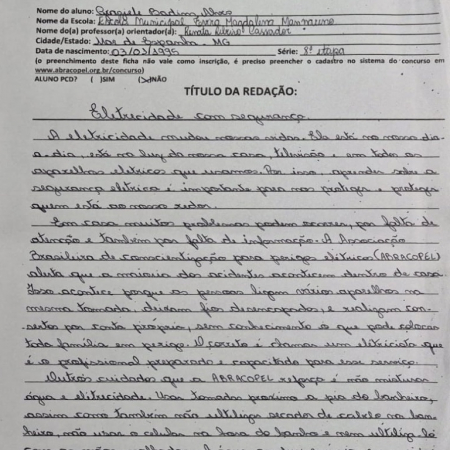 Nome do aluno:
Nome da Escola: Escola Municipal
Nome do(a) professor(a) orientador(a): Renata Ribeiro
Cidade/Estado: Mar de Espanha - MG
Data de nascimento: 03/03/1995 Série: 8ª etapa
(o preenchimento deste ficha não vale como inscrição, é preciso preencher o cadastro no sistema do concurso em
www.abracopel.org.br/concurso)
ALUNO PCD? ( )SIM (X)NÃO
TÍTULO DA REDAÇÃO:
Eletricidade com segurança
A eletricidade mudou nossas vidas. Ela está no nosso dia-
a-dia, está na luz da nossa casa, televisão e em todos os
aparelhos elétricos que usamos. Por isso, aprender sobre a
segurança elétrica é importante para nos proteger e proteger
quem está ao nosso redor.
Em casa muitos problemas podem ocorrer, por falta de
atenção e também por falta de informação. A Associação
Brasileira de conscientização para perigos elétricos (ABRACOPEL)
alerta que a maioria dos acidentes acontecem dentro de casa.
Isso acontece porque as pessoas ligam vários aparelhos na
mesma tomada, deixam fios desencapados, e realizam con-
sertos por conta própria, sem conhecimento o que pode colocar
toda família em perigo. O correto é chamar um eletricista que
é o profissional preparado e capacitado para esse serviço.
Outros cuidados que a ABRACOPEL reforça é não misturar
água e eletricidade. Usar tomadas próximo a pia do banheiro,
assim como também não utilizar secador de cabelo no ban-
heiro, não usar o celular na hora do banho e nem utilizá-lo